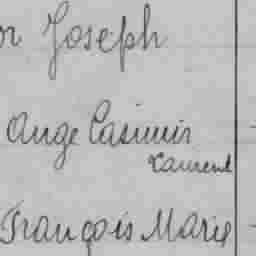 Joseph
Ange Casimir
Laurent
François Marie